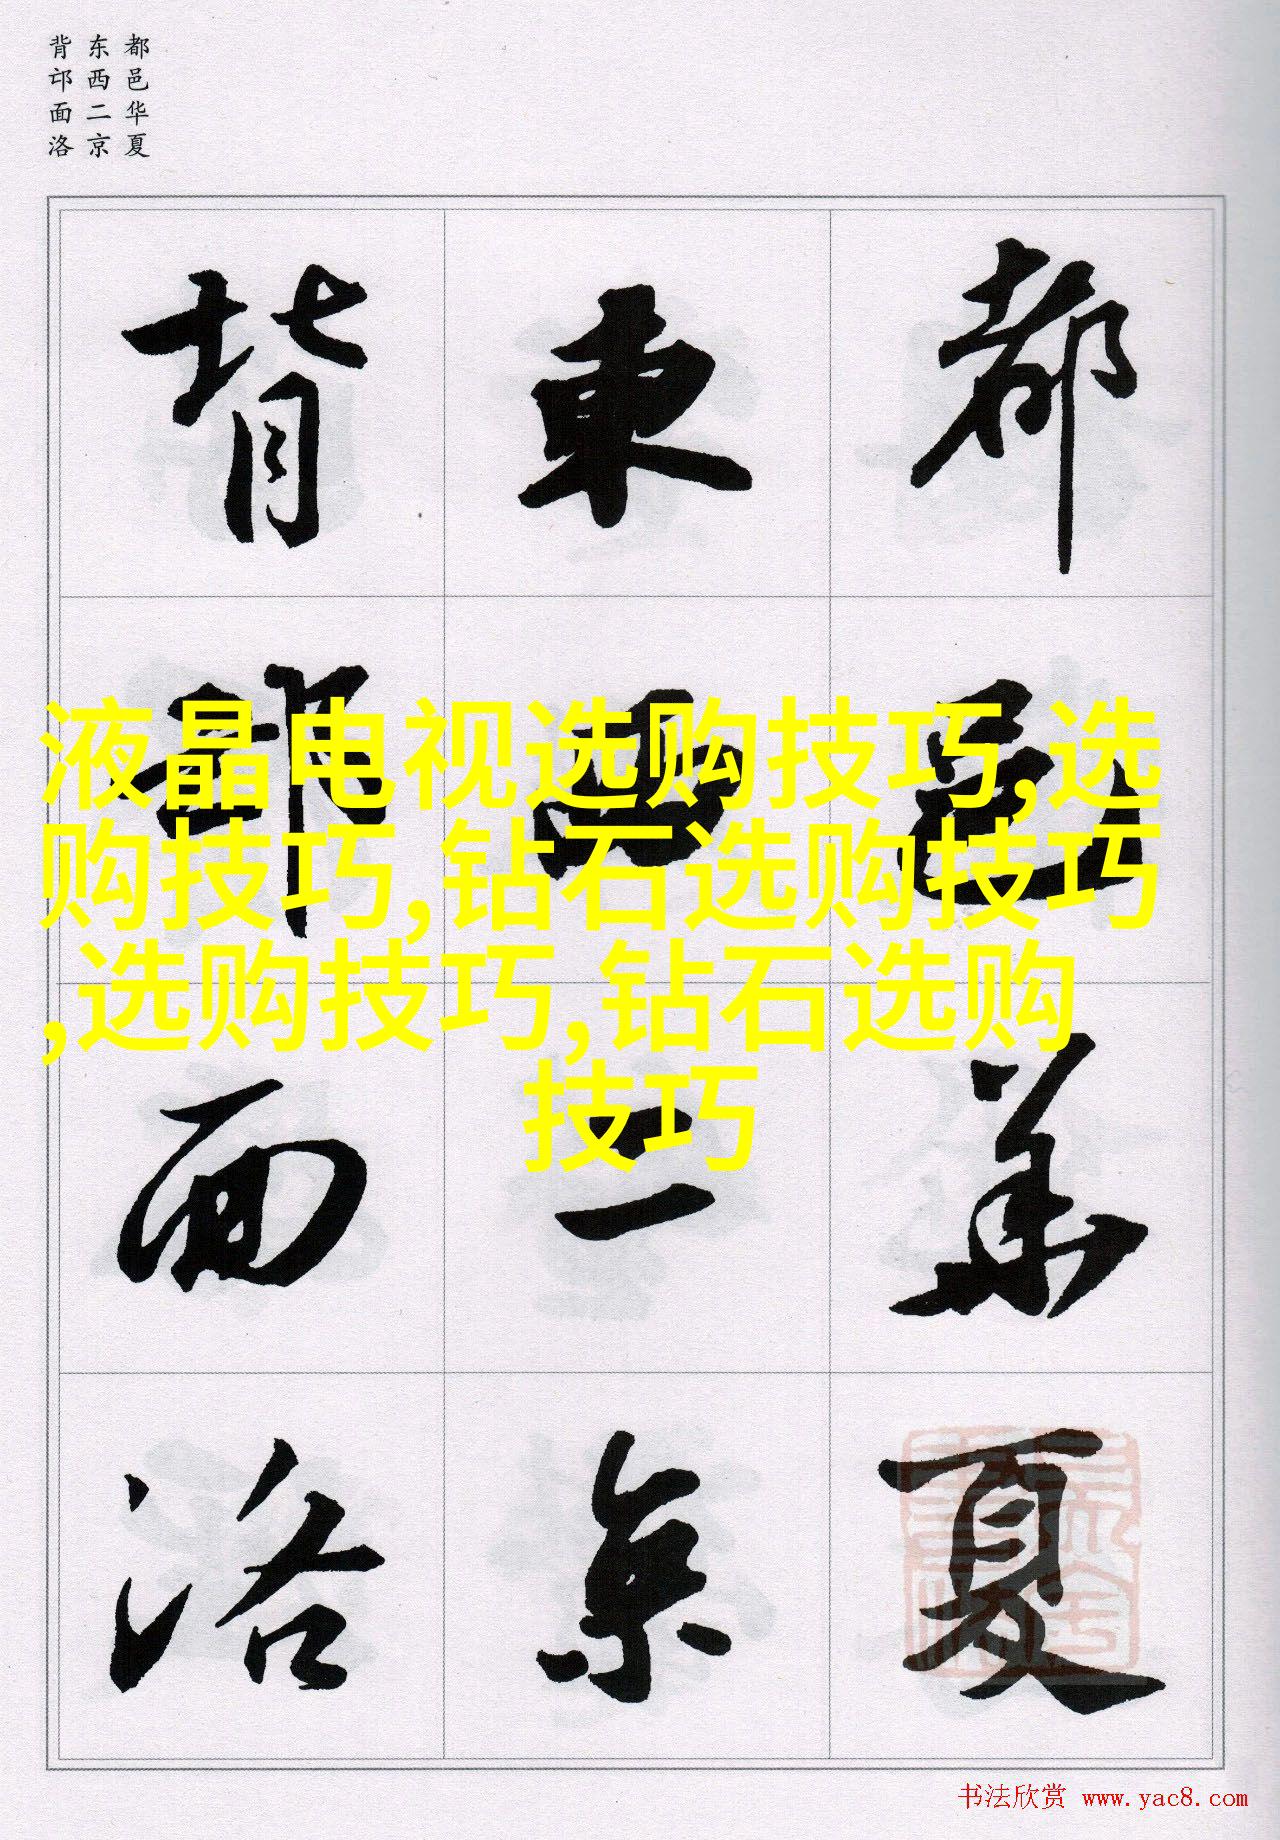 都邑华夏
东西二京
背邙面洛
都邑華夏
東西二京
背邙面洛
液晶电视选购技巧,选
购技巧,钻石选购技巧
,选购技巧,钻石选购
技巧
书法欣赏 www.yac8.com